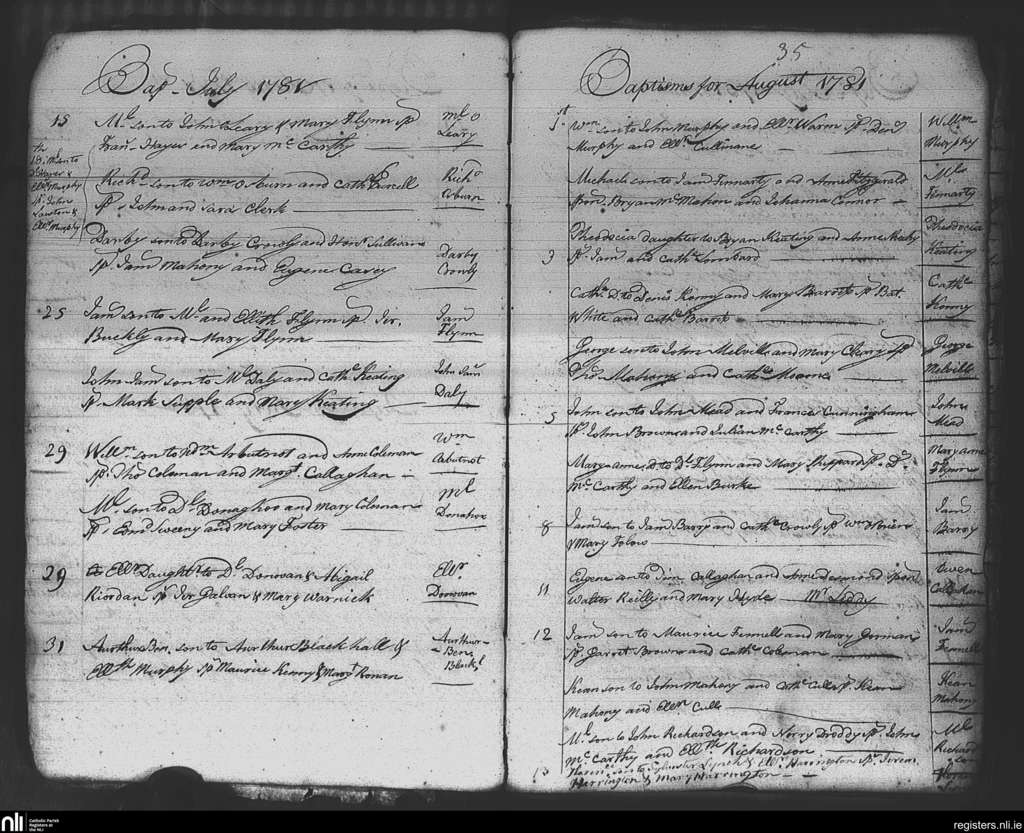 Bap. July 1781
15
Ml. son to John Leary & Mary Flynn Sp
Fran. Hayes and Mary Mc Carthy
Ml. o
Leary
th
18. Ml son to
Hayes &
Ellr Murphy
Sp. John
Lawton &
Ellr Murphy
Richd son to Wm o Burn and Cath Purcell
Sps John and Sara Clerk
Richd
Darby son to Darby Crowly and Honr Sullivan
Sp. Jam Mahony and Eugene Carey
Darby
Crowly
25
Jam son to Ml. and Ellth Flynn Sp. Jer.
Buckly and Mary Flynn
Jam
Flynn
John Jam son to Ml Daly and Cath Keating
Sp. Mark Supple and Mary Keating
John Jam
Daly
29
Willm son to Arbutnot and Anne Coleman
Sp. Tho Coleman and Margt Callaghan
Wm
Arbutnot
Ml. son to Dl Donaghoo and Mary Coleman
Sp. Edmd Sweeny and Mary Foster
Ml
Donahoo
29
Ellr Daughtr to Dl Donovan & Abigail
Riordan Sp Jer Galvan & Mary Warnick
Ellr.
Donovan
31
Aurthur Ben. son to Aurthur Blackhall &
Ellth Murphy Sp. Maurice Kenny & Margt Ronan
Aurthur
Ben.
Blackl
35
Baptisms for August 1781
1st
Wm son to John Murphy and Ellr Warin Sp. Denis
Murphy and Ellr Cullinane
Willm
Murphy
Michael son to Jam Finnarty and Anne Fitzgerald
Spon. Bryan Mc Mahon and Johanna Connor
Mls
Finnarty
3
Theodocia daughter to Bryan Keating and Anne
Sp. Jam and Cath Lombard
Theodocia
Keating
Cath D. to Denis Kenny and Mary Barrot Sp Bat.
White and Cath Barrot
Cath
Kenny
George son to John Melville and Mary Sp
Tho. Mahony and Cath
George
Melville
5
John son to John Mead and Frances Cunningham
Sp. John Browne and Julian Mc Carthy
John
Mead
Mary anne D. to Dl. Flynn and Mary Sheppard Sp. D.
Mc Carthy and Ellen Burke
Mary anne
Flynn
8
Jam son to Jam Barry and Cath Crowly Sp. Wm
& Mary
Jam
Barry
11
Eugene son to Tim Callaghan and Anne Desmond Spon
Walter Reilly and Mary Hyde Mr Liddy
Owen
Callahan
12
Jam son to Maurice Fennell and Mary Gorman
Sp. Garret Browne and Cath Coleman
Jam
Fennell
Kean son to John Mahony and Cath Sp. Kean
Mahony and Ellen
Kean
Mahony
Ml. son to John Richardson and Norry Droddy Sp. John
Mc Carthy and Ellth Richardson
Mls
Richard
son
13
son to Sylvester Lynch & Ellr Harrington Sp. Jerem
Harrington & Mary Harrington
nli
Catholic Parish
Registers at
the NLI
registers.nli.ie